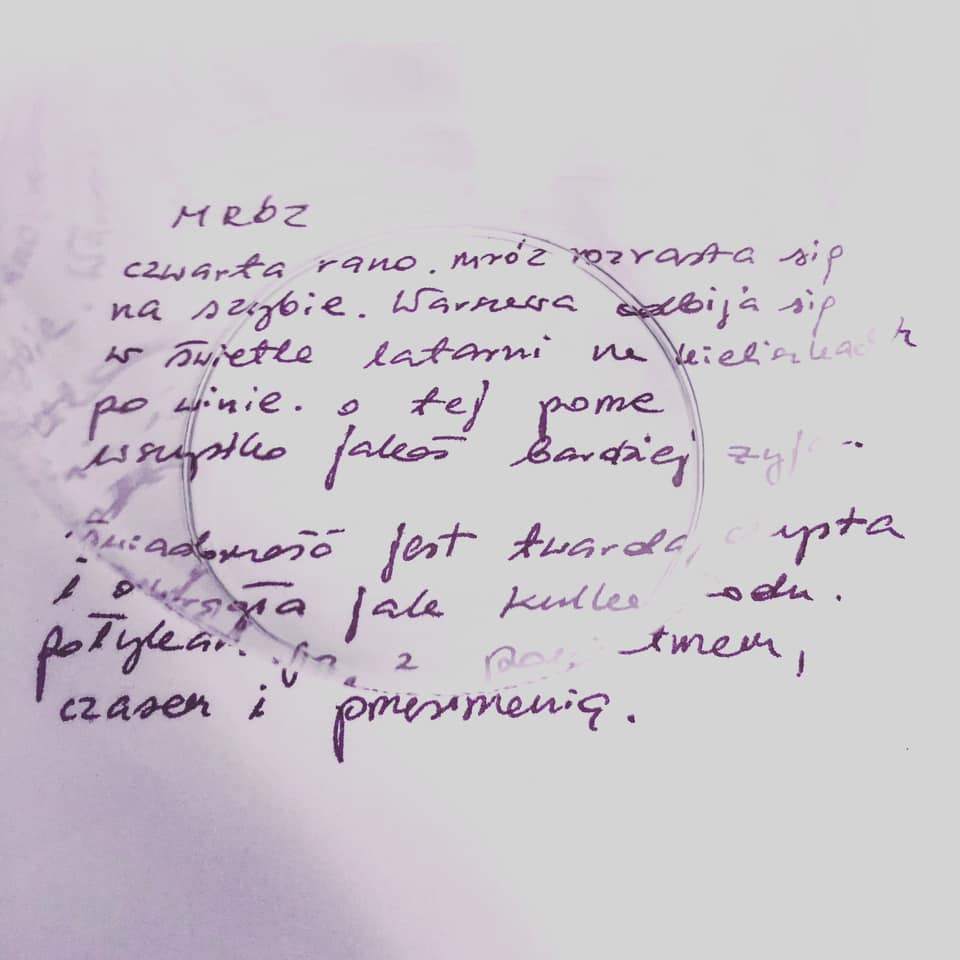 MRÓZ
czwarta rano. mróz rozrasta się
na szybie. Warszawa odbija się
w świetle latarni na kieliszkach
po winie. o tej porze
wszystko jakoś bardziej żyje..
świadomość jest twarda, czysta
i okrągła jak kulka lodu.
połykam ją z powietrzem,
czasem i przestrzenią.